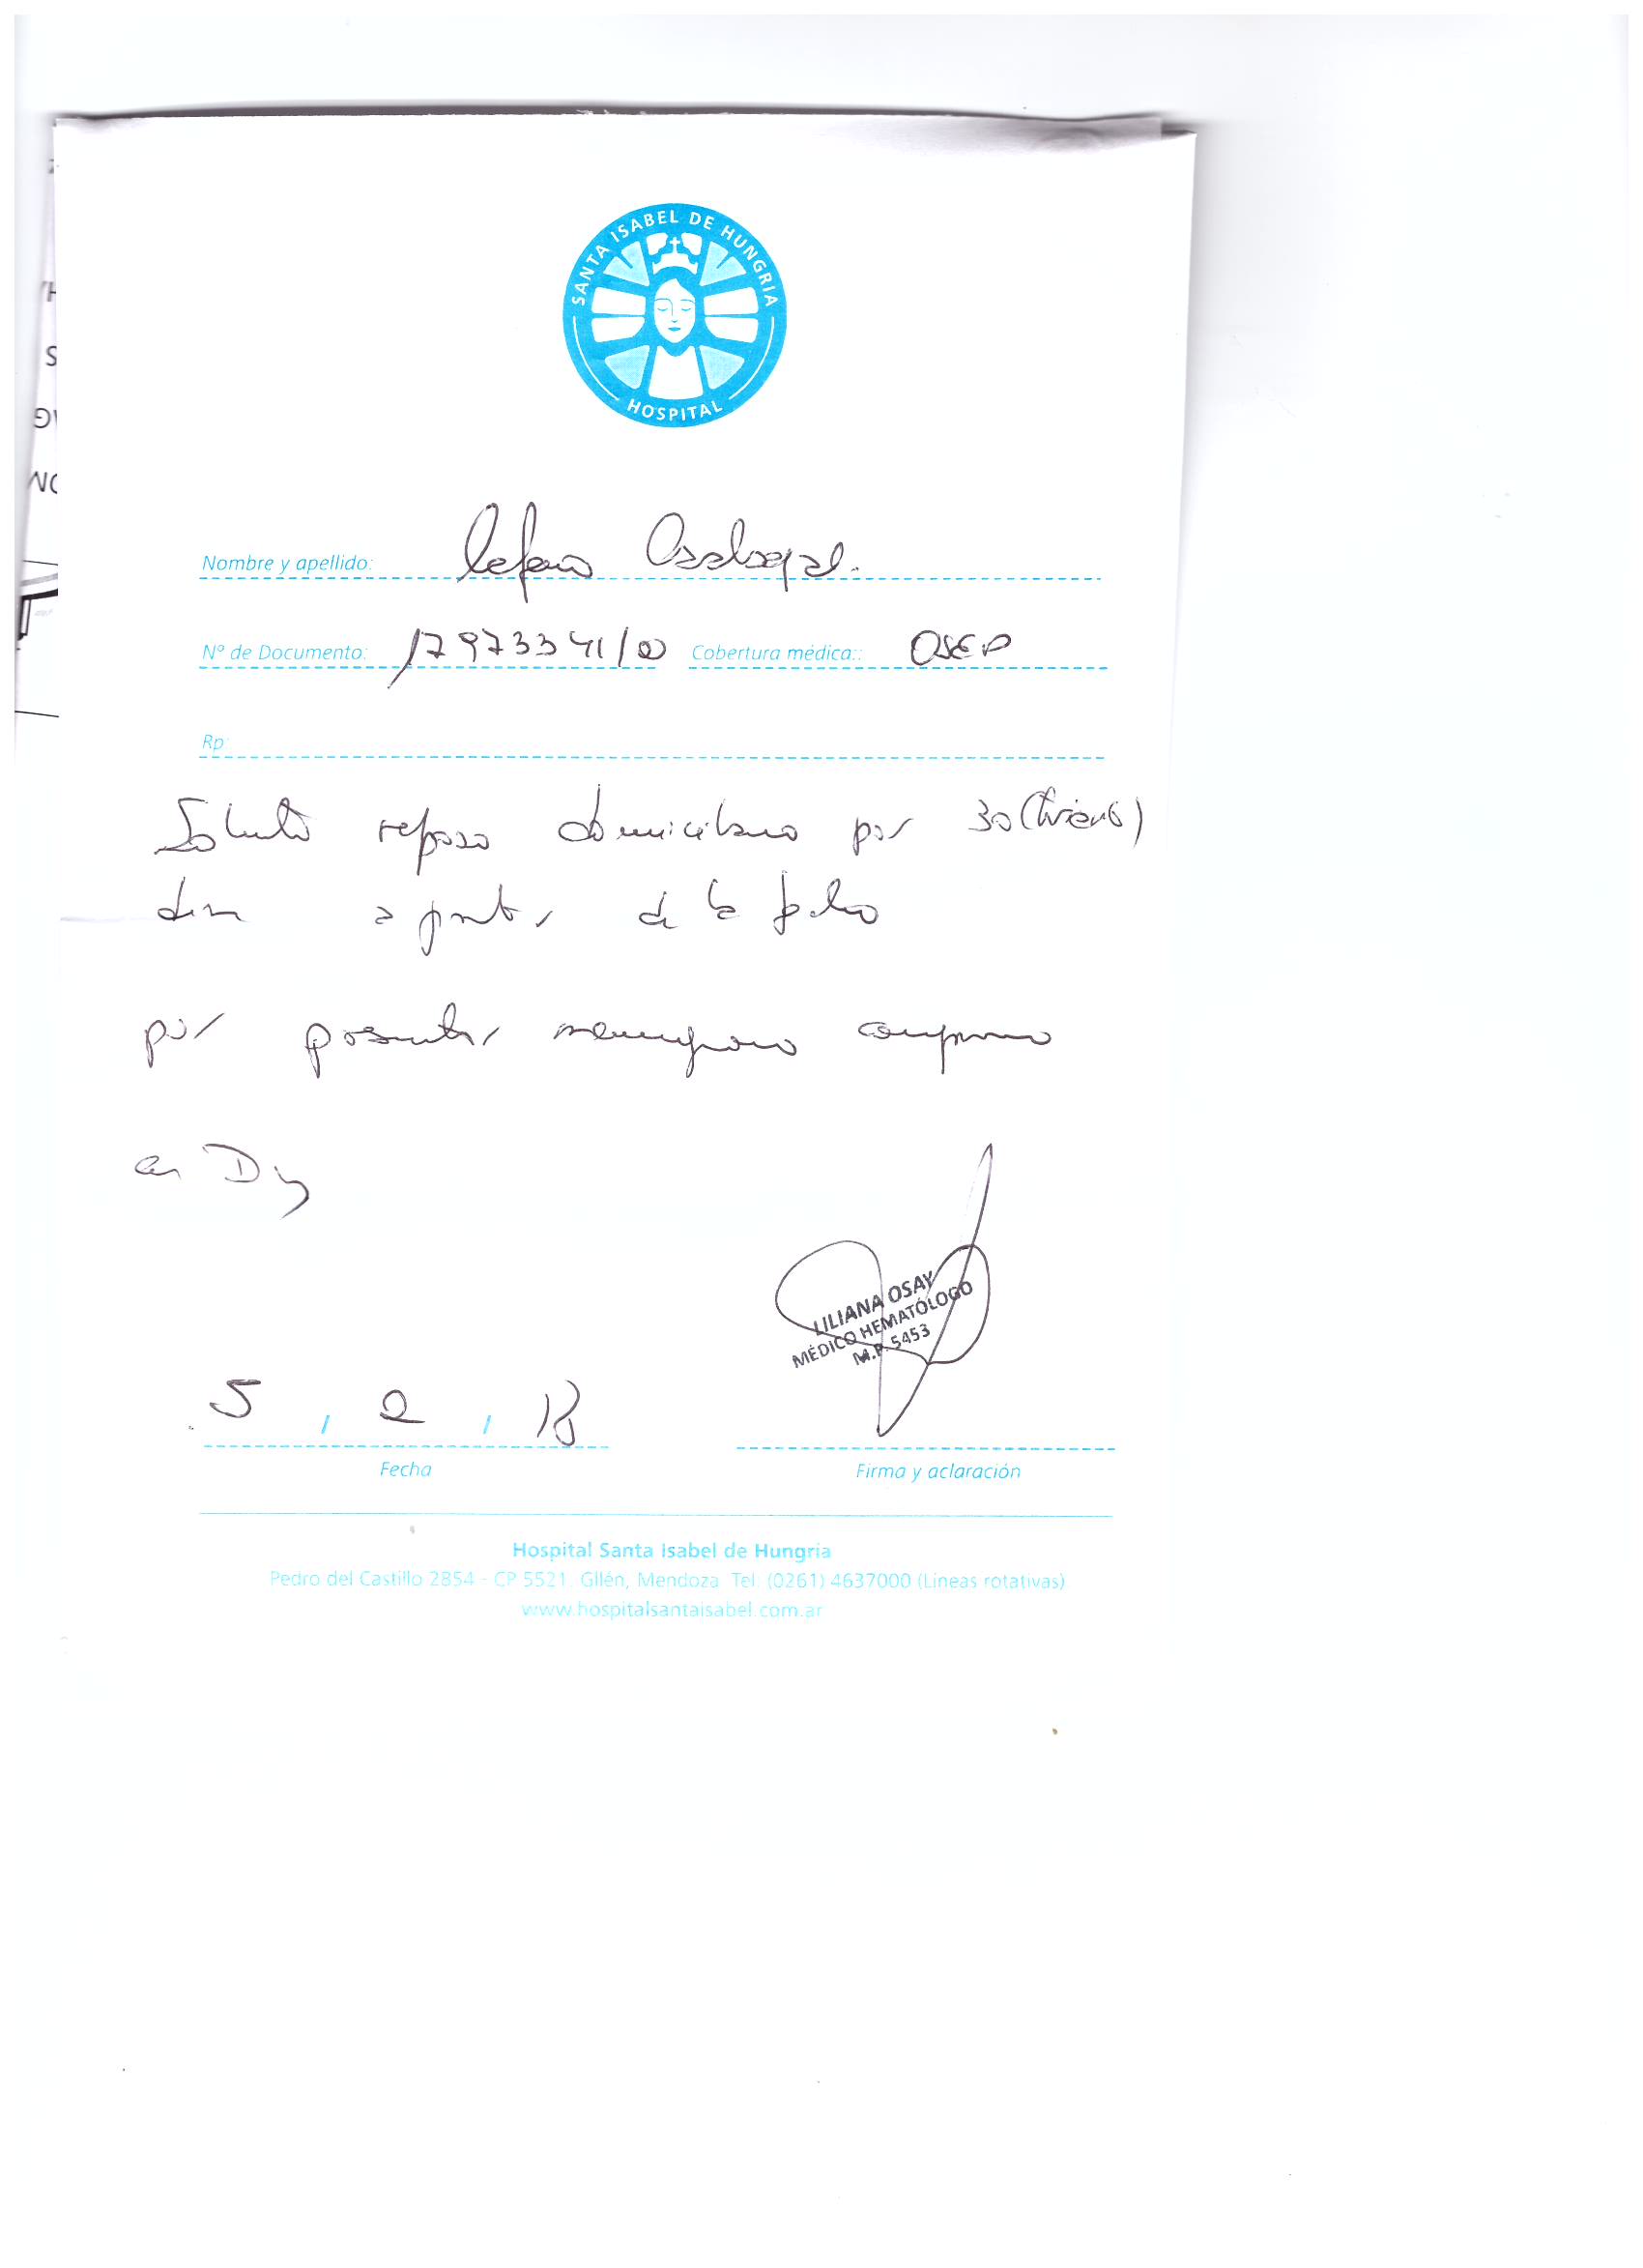 SANTA ISABEL DE HUNGRIA
HOSPITAL
Nombre y apellido:
Nº de Documento: 17973341/00 Cobertura médica:: OSEP
Rp:
Solicito reposo domiciliario por 30 (treinta)
dias a partir de la fecha
por presentar
en
LILIANA OSAY
MÉDICO HEMATÓLOGO
M.P. 5453
5 / 2 / 18
Fecha Firma y aclaración
Hospital Santa Isabel de Hungria
Pedro del Castillo 2854 - CP 5521. Gllén, Mendoza. Tel. (0261) 4637000 (Lineas rotativas)
www.hospitalsantaisabel.com.ar